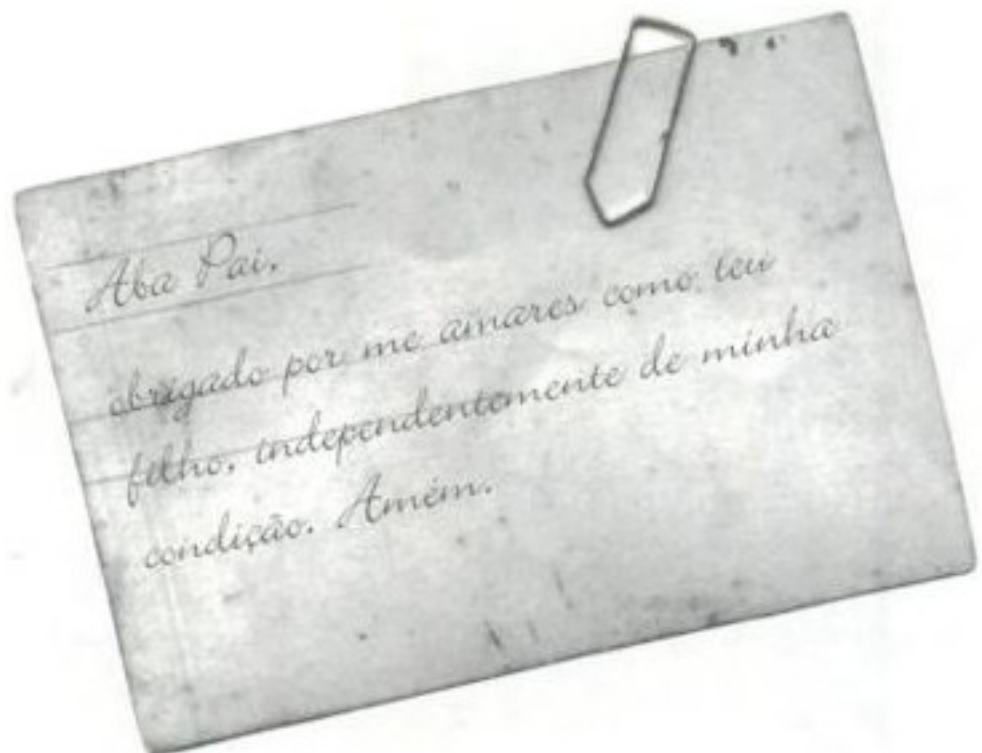 Aba Pai,
obrigado por me amares como teu
filho, independentemente de minha
condição. Amém.